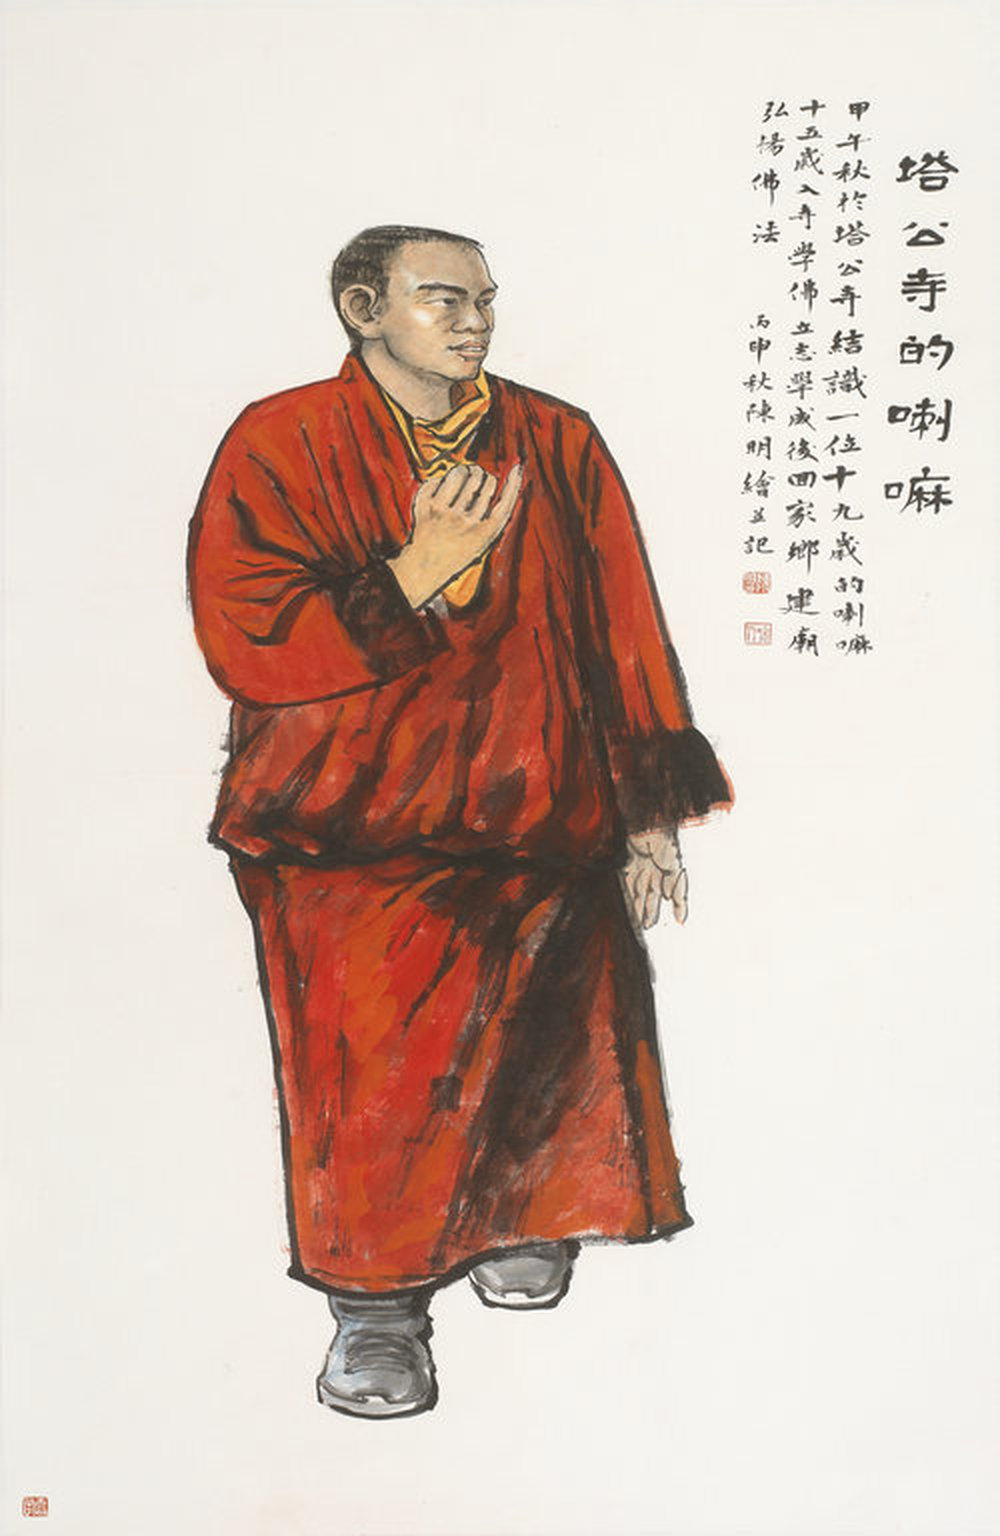 塔公寺的喇嘛
甲午秋於塔公寺結識一位十九歲的喇嘛
十五歲入寺學佛立志學成後回家鄉建廟
弘揚佛法
丙申秋陳明繪並記